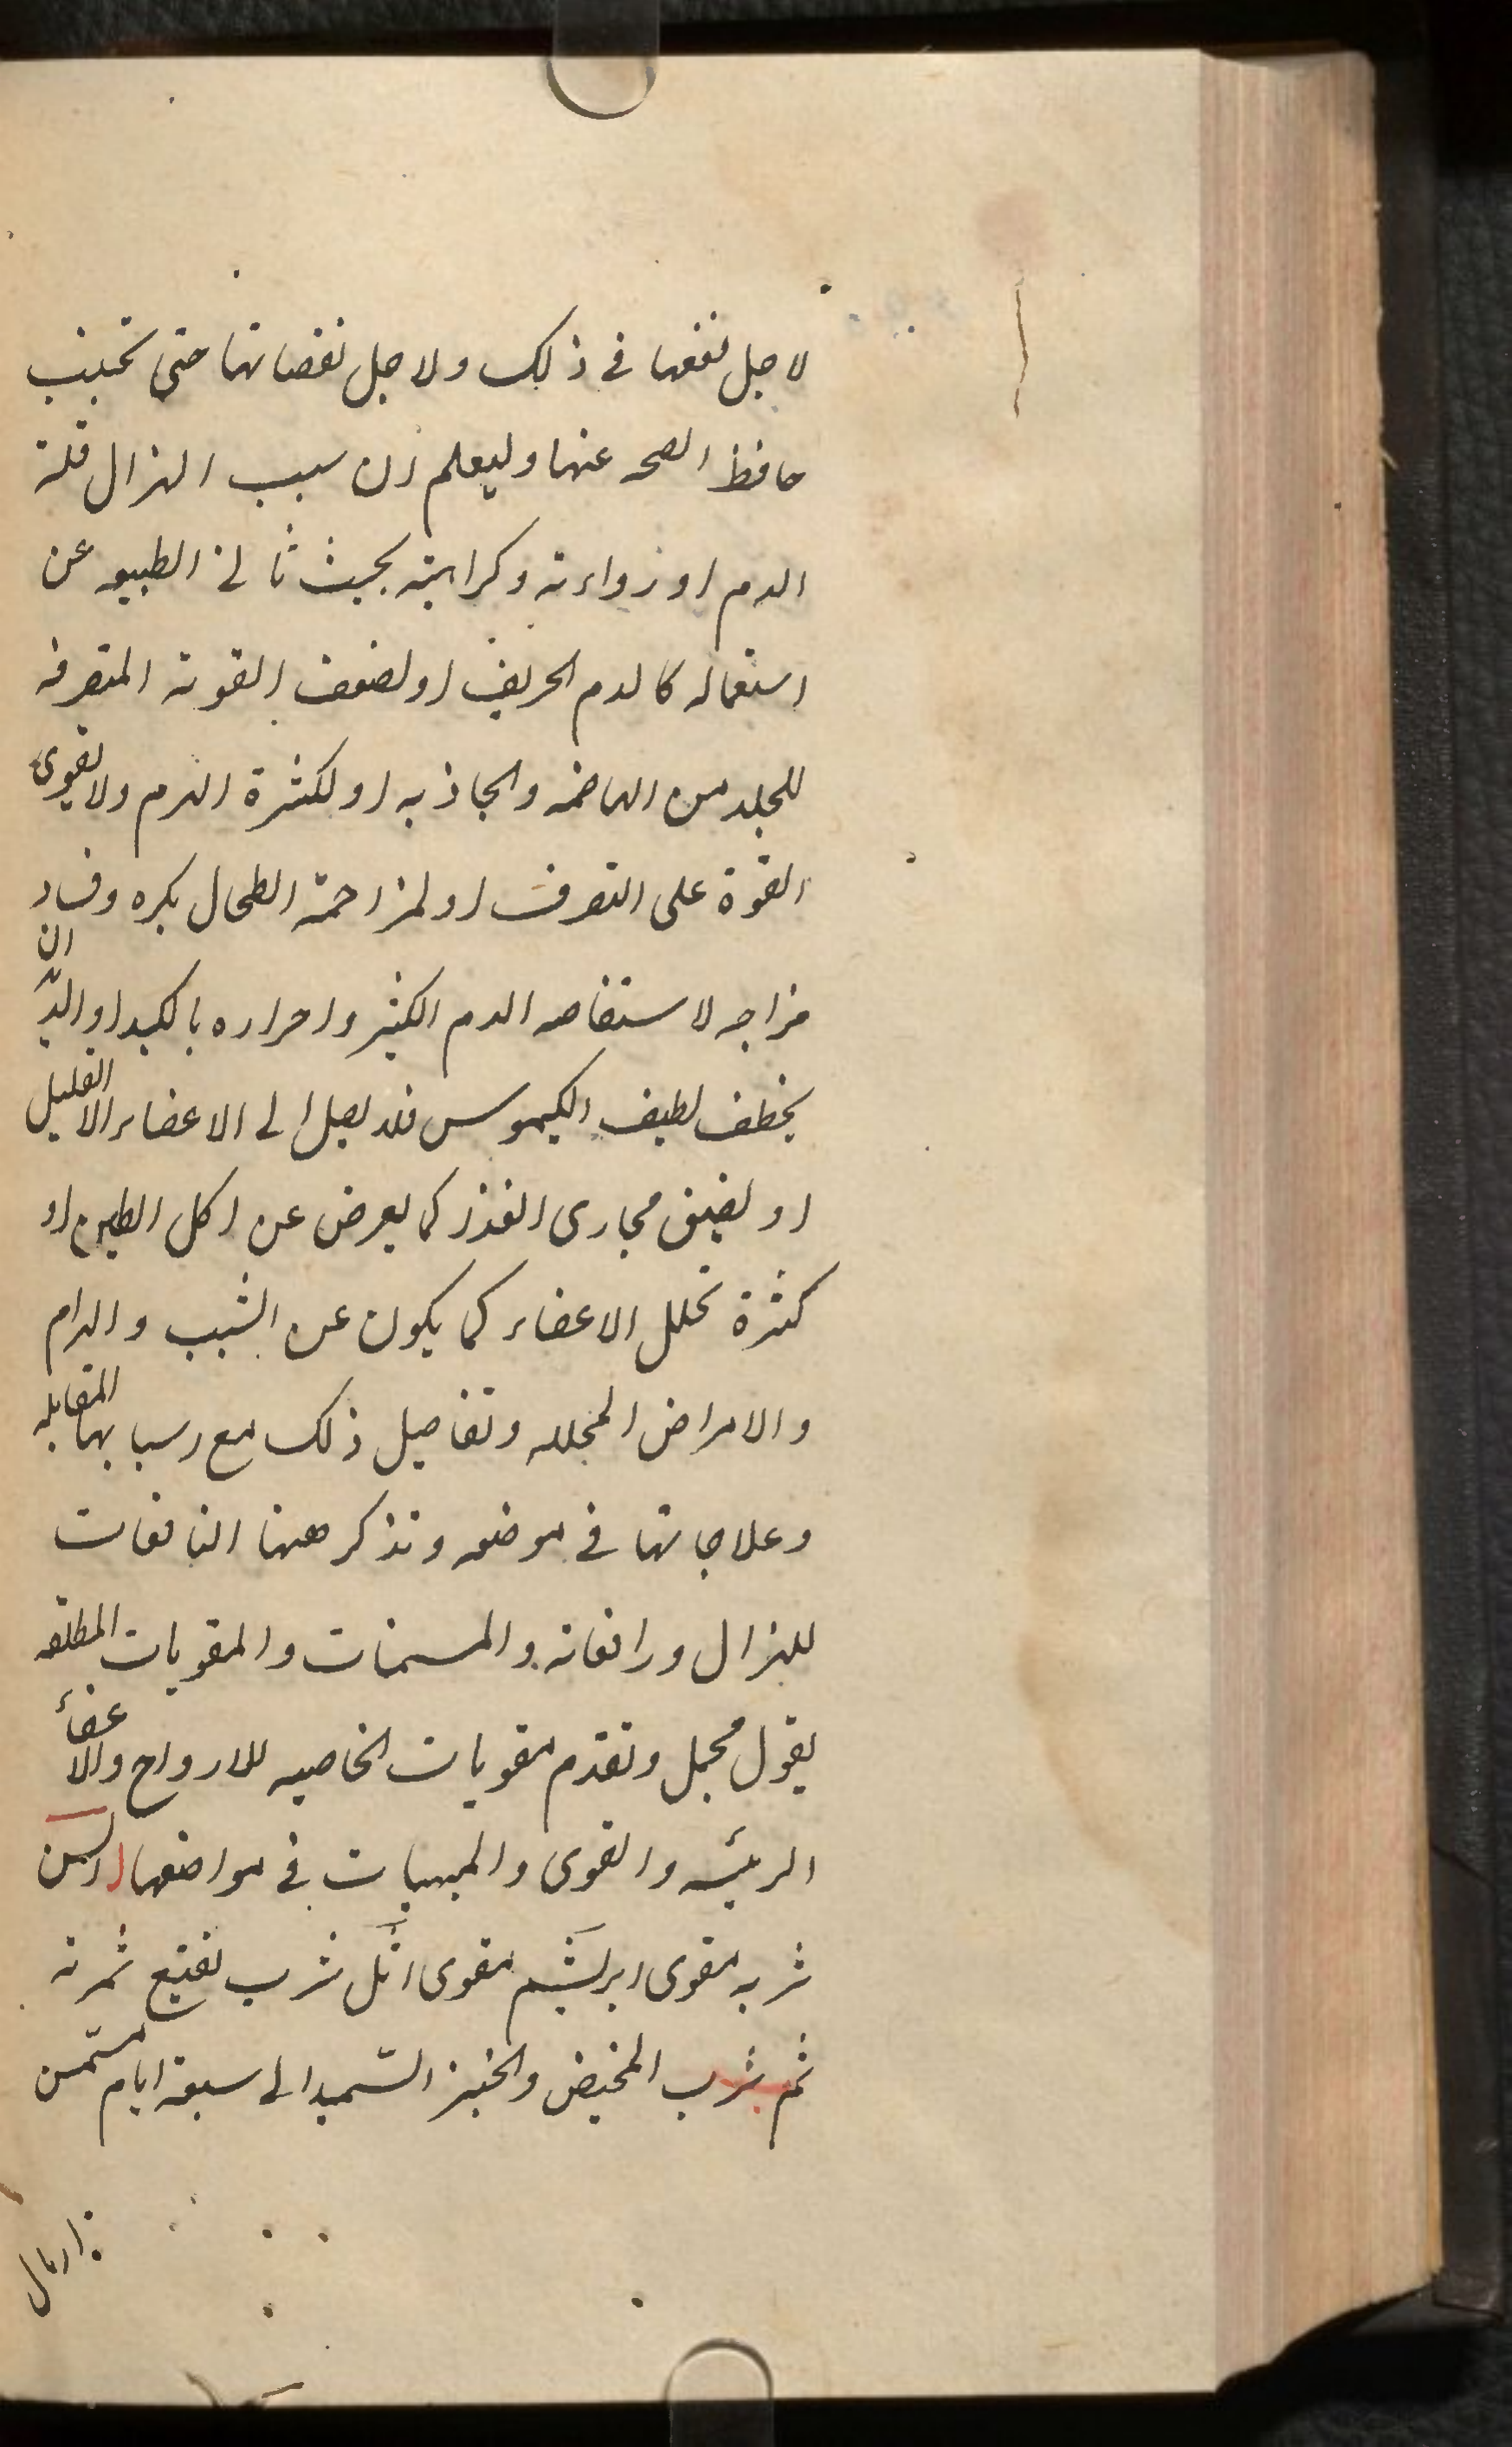 لاجل نفعها في ذلك ولاجل نقصانها حتى تجنب
حافظ الصحه عنها وليعلم ان سبب الهزال قلة
الدم او رداءته وكراهيته بحيث تانف الطبيعه عن
استعماله كالدم الحريف او لضعف القوة المتصرفه
للجلد من الهاضمه والجاذبه او لكثرة الدم ولا يقوى
القوة على التصرف او لمزاحمة الطحال بكبره وفساد
مزاجه لاستفاضه الدم الكثير واضراره بالكبد او الديدان
يخطف لطيف الكيموس فلا يصل الى الاعضاء الا القليل
او لضيق مجارى الغذا كما يعرض عن اكل الطين او
كثرة تحلل الاعضاء كما يكون عن التعب والهرام
والامراض المحلله وتفاصيل ذلك مع اسبابها المقابله
وعلاجاتها في موضعه ونذكر ههنا النافعات
للهزال ورافعاته والمسمنات والمقويات المطلقه
بقول مجمل وتقدم مقويات الخاصيه للارواح والاعضاء
الرئيسه والقوى والمبهيات في مواضعها
شربه مقوى ابريشم مقوى اثل شرب نقيع ثمرته
ثم شرب المخيض والخبز السميد الى سبعة ايام مسمن